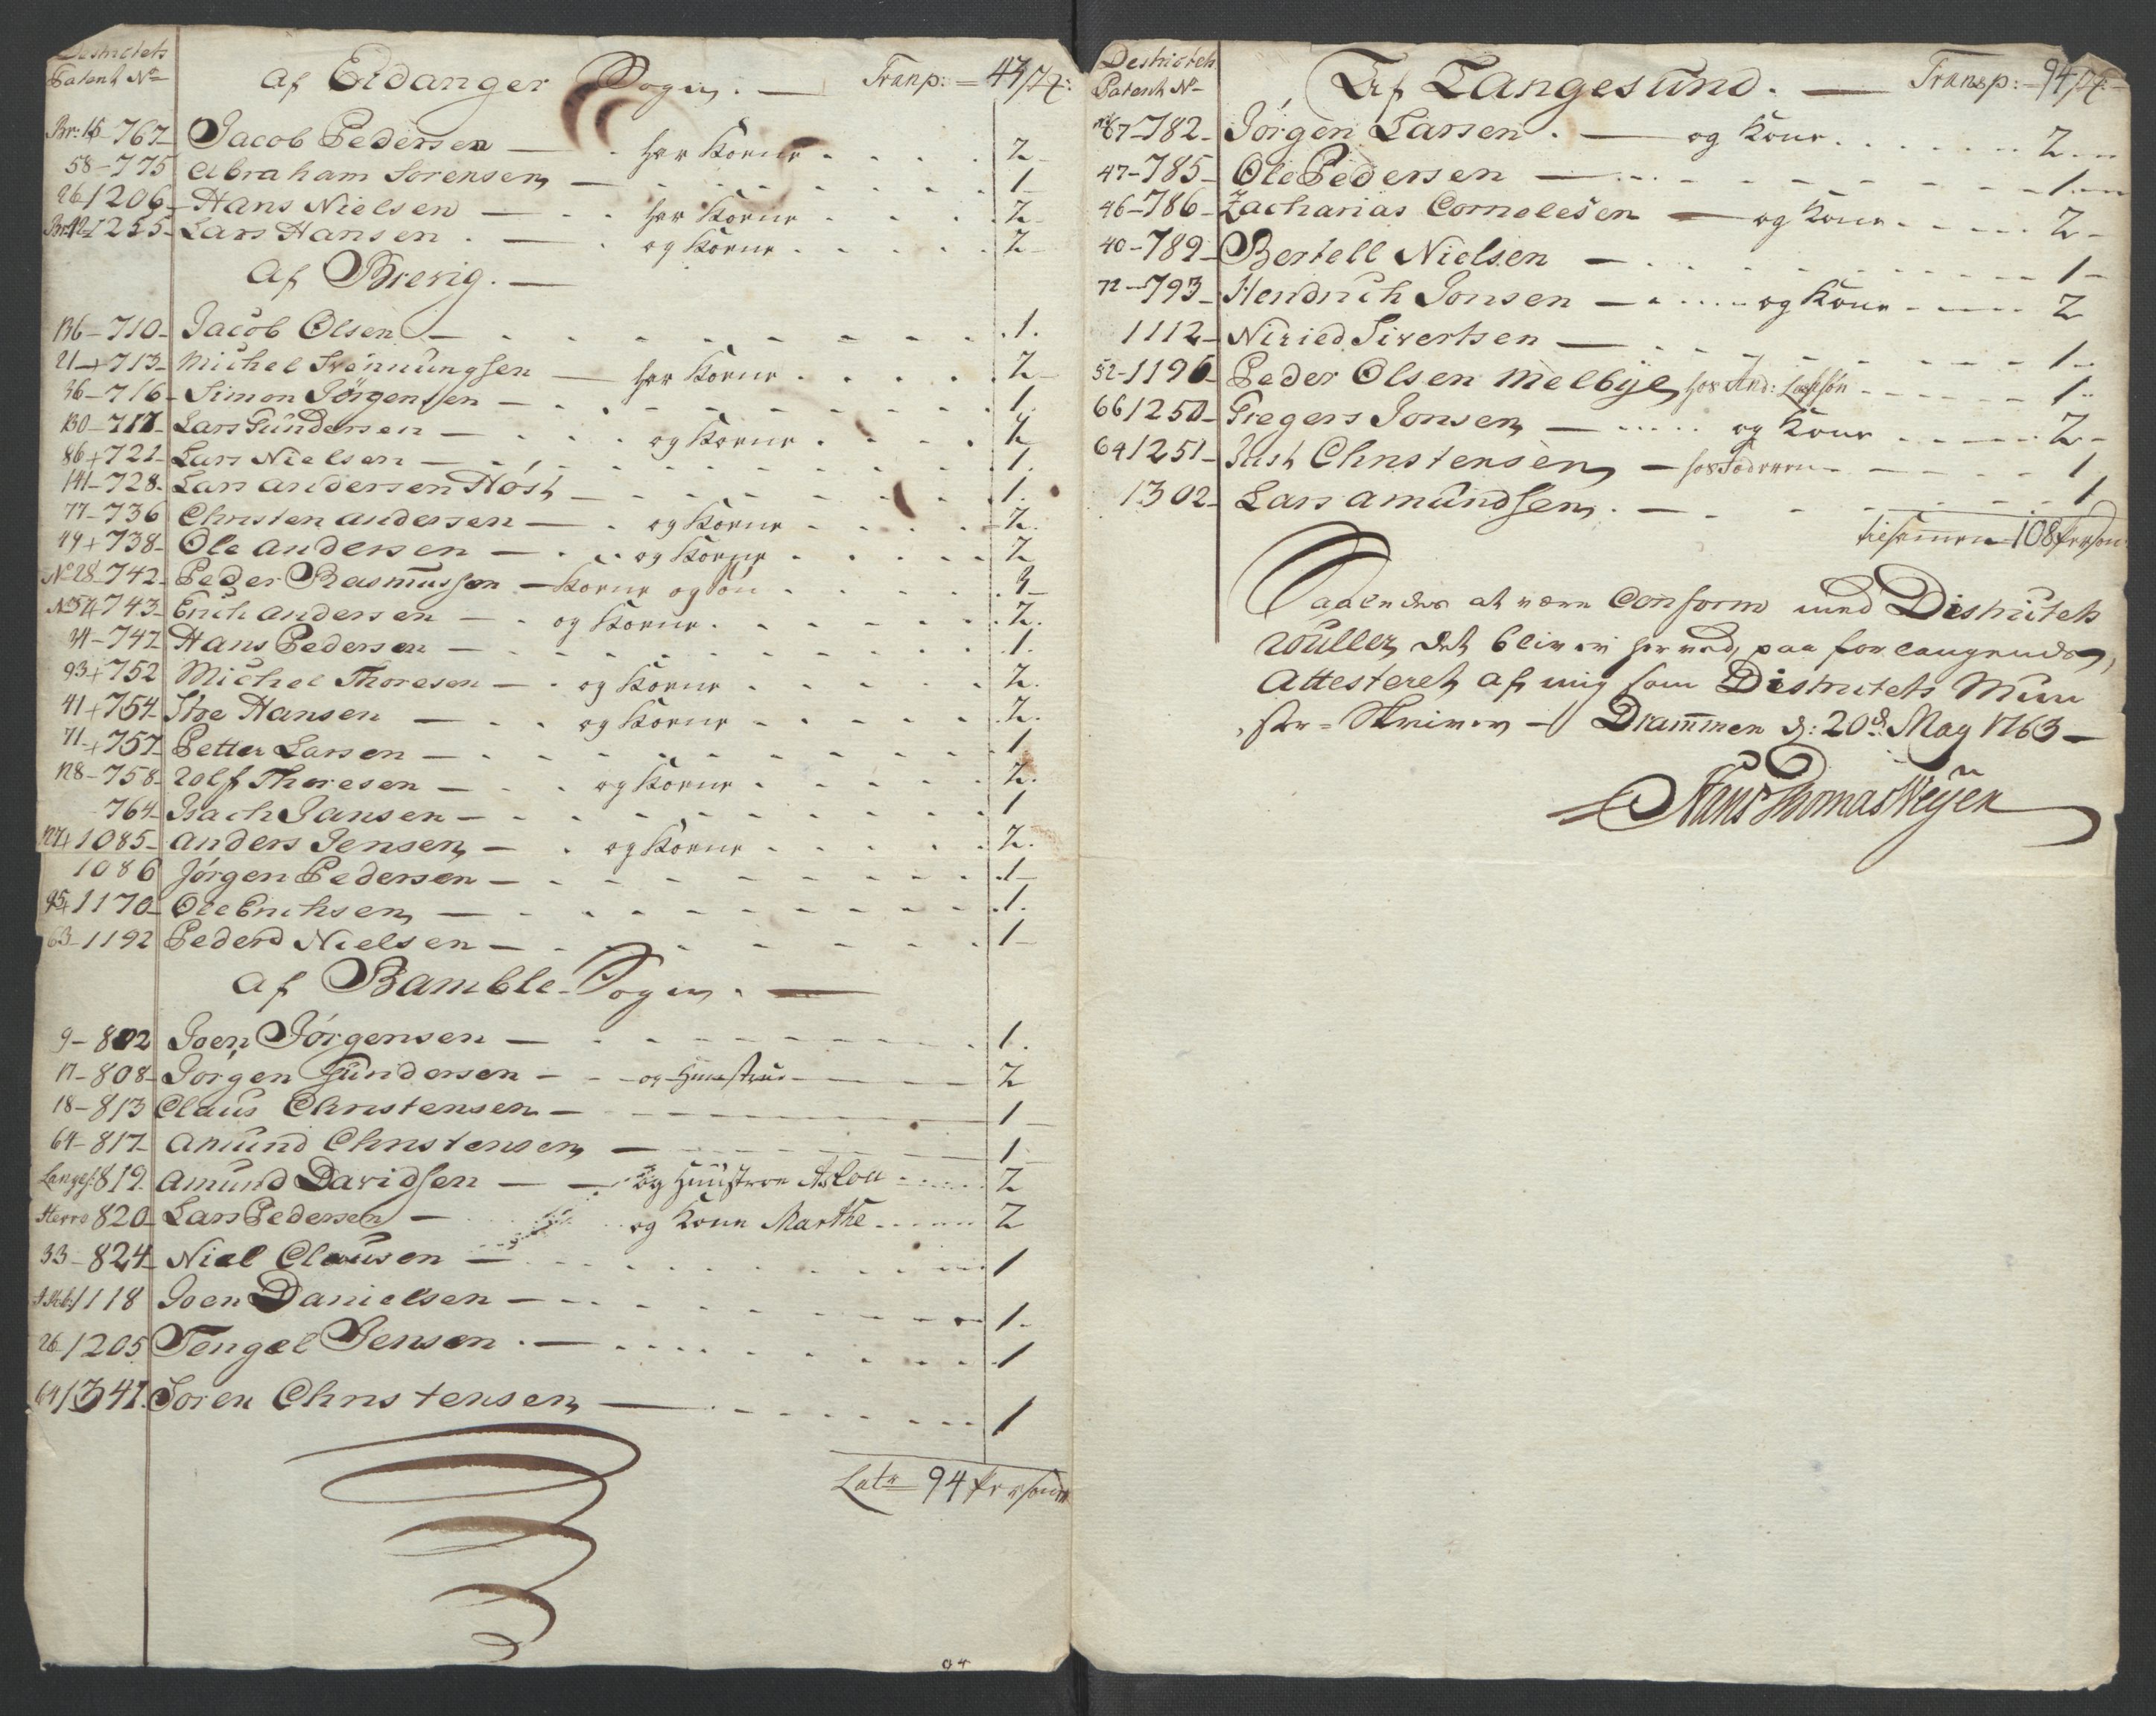 Destrictets
Patent No
Af Eidanger Sogn. — Transp: = 47
Br: 15 - 767 - Jacob Pedersen — har Konne 2
58 - 775 Abraham Sørensen — 1
26 - 1206 - Hans Nielsen — har Konne 2
1255 - Lars Hansen — og Konne 2
Af Brevig. —
136 - 710 - Jacob Olsen — 1.
21 - 713 - Michel Svennungsen — har Konne 2
36 - 716 - Simon Jörgensen — 1
130 - 717 - Lars Gundersen — og Konne 2
86 + 721 - Lars Nielsen — 1.
141 - 728 - Lars Andersen Höst — 1.
77 - 736 Christen Andersen — og Konne 2.
44 + 738 - Ole Andersen — og Konne 2
No 28 - 742 - Peder Rasmussen — Konne og Sön 3
No 57 743 - Erich Andersen — og Konne 2.
24 - 747 - Hans Pedersen — 1.
93 + 752 Michel Thoresen — og Konne 2.
41 + 754 - Hansen — og Konne 2.
71 + 757 - Petter Larsen — 1
128 - 758 - Rolf Thoresen — og Konne 2.
764 - Isach Jansen — 1
1085 - Anders Jensen — og Konne 2.
1086 Jörgen Pedersen — 1
95 + 1170 - Ole Erichsen — 1.
63 - 1192 Peder Nielsen — 1
Af Bamble Sogn. —
9 - 802 Joen Jörgensen — 1.
17 - 808 - Jörgen Gundersen — og Huustrue 2
18 - 813 Claus Christensen — 1
64 - 817 - Amund Christensen — 1
Langes: 819. Amund Davidsen — og Huustroe 2
Herre 820 - Lars Pedersen — og Kone Marthe 2
33 - 824 - Niel Clausen — 1
1118 Joen Danielsen — 1.
26 1205 Tengel Jensen — 1
64 1341. Soren Christensen — 1
Lat 94 Persohner
Destrictets
Patent No
Af Langesund. — Transp: = 94
87 - 782 - Jörgen Larsen — og Kone 2
47 - 785 - Ole Pedersen — 1
46 - 786 - Zacharias Cornelesen — og Kone 2
40 - 789 - Bertell Nielsen — 1
72 - 793 - Hendrich Jonsen — og Kone 2
1112 - Niried Sivertsen — 1
52 - 1196 - Peder Olsen Melbye hos And: 1
66 1250 - Gregers Jonsen — og Kone 2
64 1251 - Just Christensen — hos Foderen 1
1302 - Lars Amundsen — 1
tilsammen 108 Person
Saaledes at være Conform med Destrictets
Ruller, det bliver herved, paa forlangende,
Attesteret af mig som Destrictets Mun
ster = Skriver — Drammen d: 20d May 1763 —
Hans Thomas Weyer